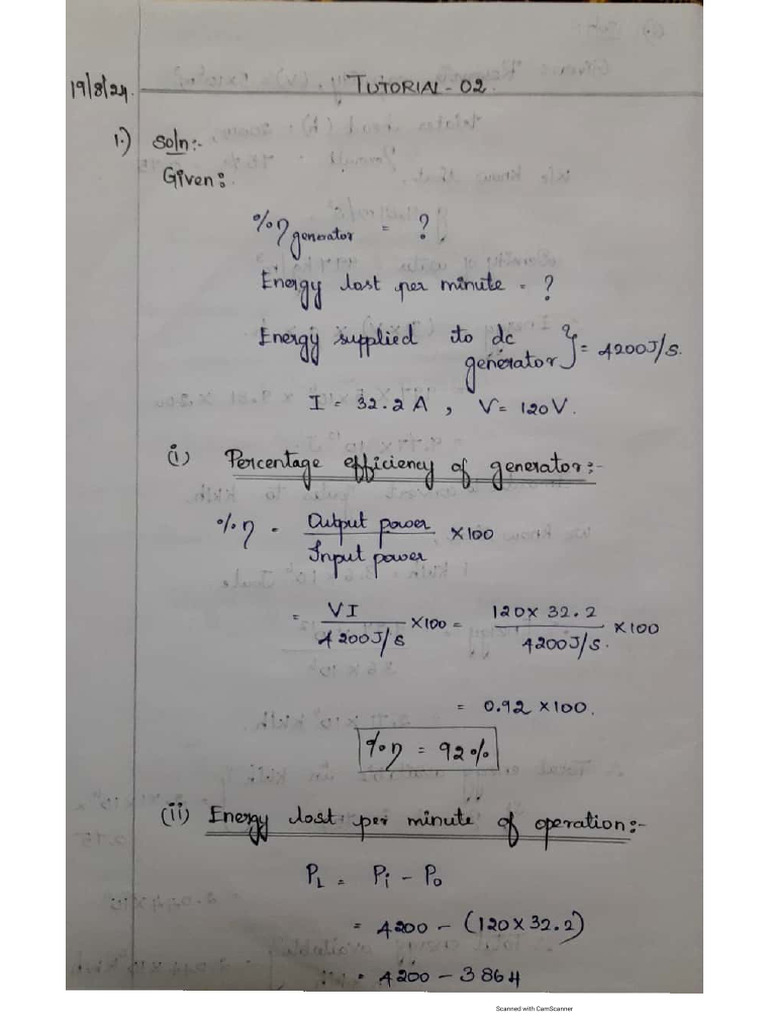 19/8/24. TUTORIAL - 02.
1.) Soln:-
Given:
%η generator = ?
Energy lost per minute = ?
Energy supplied to dc generator } = 4200J/s.
I = 32.2 A , V = 120V.
(i) Percentage efficiency of generator:-
%η = Output power / Input power ×100
= VI / 4200J/s ×100 = 120 × 32.2 / 4200J/s. ×100
= 0.92 ×100.
%η = 92%
(ii) Energy lost per minute of operation:-
PL = Pi - Po
= 4200 - (120 × 32.2)
= 4200 - 3864
Scanned with CamScanner